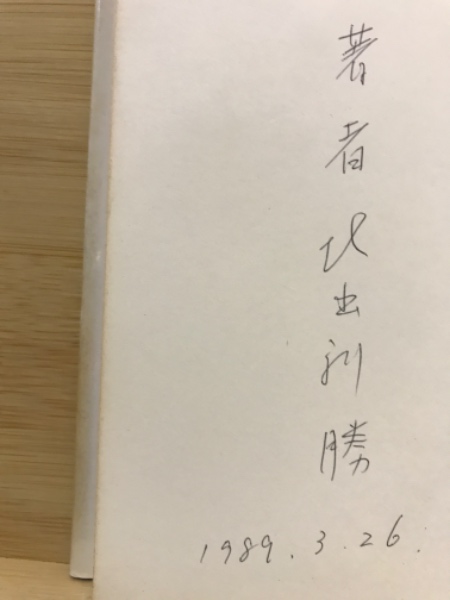 著者 北出利勝
1989.3.26.